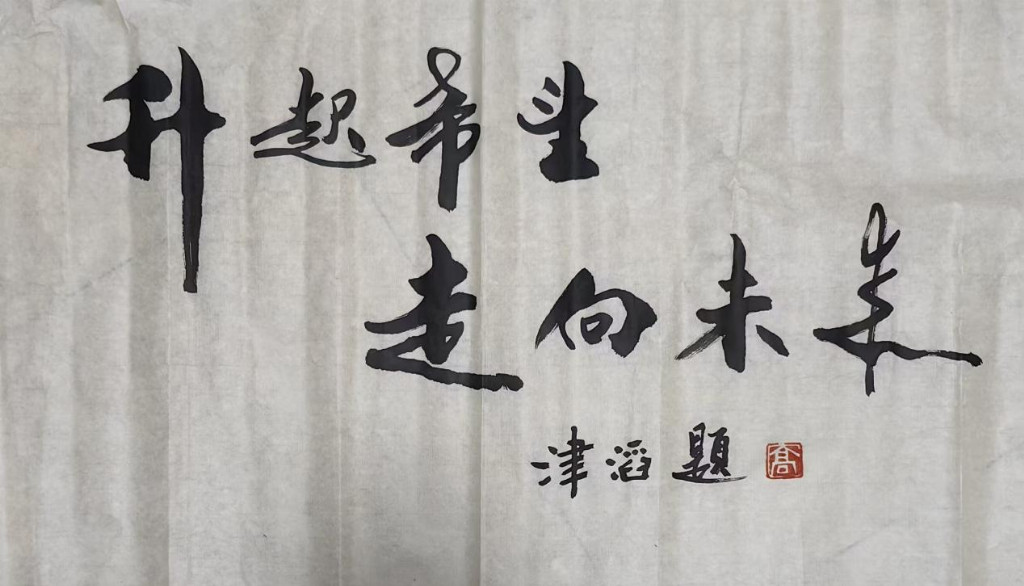 升起希望
走向未来
津滔題
高